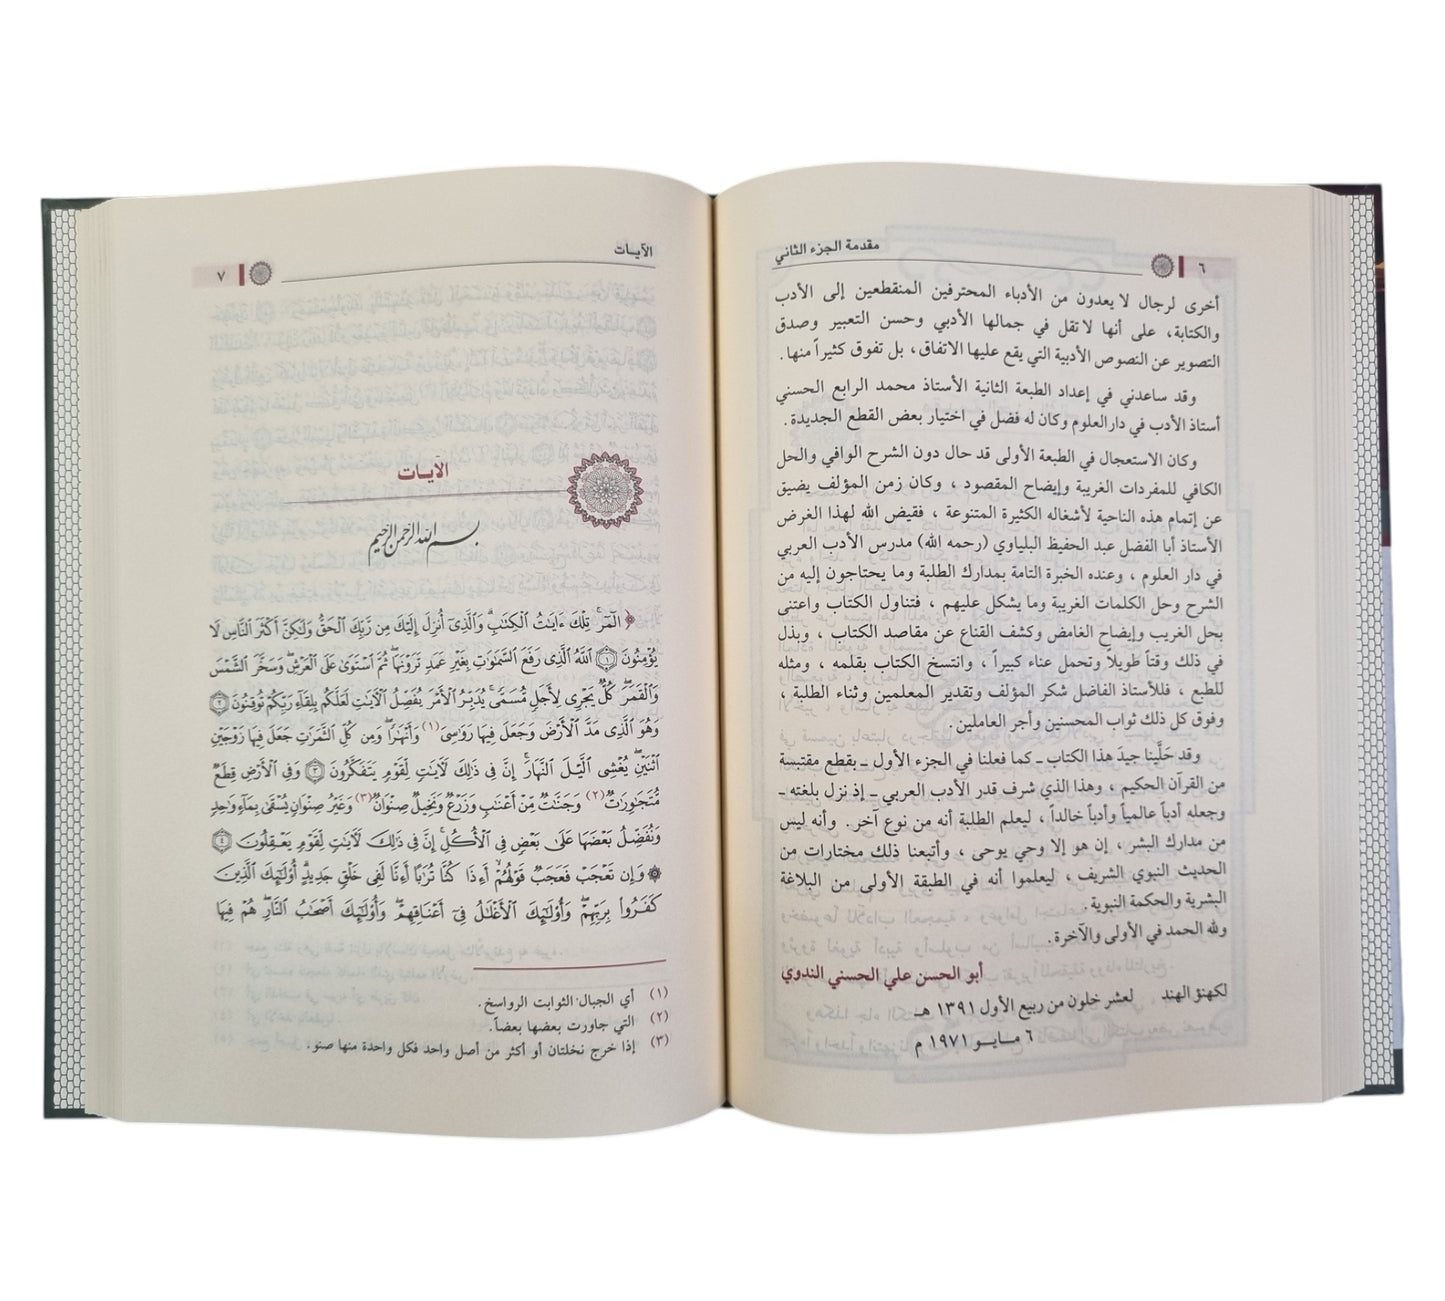 ٦
مقدمة الجزء الثاني
أخرى لرجال لا يعدون من الأدباء المحترفين المنقطعين إلى الأدب
والكتابة، على أنها لا تقل في جمالها الأدبي وحسن التعبير وصدق
التصوير عن النصوص الأدبية التي يقع عليها الاتفاق، بل تفوق كثيراً منها.
وقد ساعدني في إعداد الطبعة الثانية الأستاذ محمد الرابع الحسني
أستاذ الأدب في دار العلوم وكان له فضل في اختيار بعض القطع الجديدة.
وكان الاستعجال في الطبعة الأولى قد حال دون الشرح الوافي والحل
الكافي للمفردات الغريبة وإيضاح المقصود ، وكان زمن المؤلف يضيق
عن إتمام هذه الناحية لأشغاله الكثيرة المتنوعة ، فقيض الله لهذا الغرض
الأستاذ أبا الفضل عبد الحفيظ البلياوي (رحمه الله) مدرس الأدب العربي
في دار العلوم ، وعنده الخبرة التامة بمدارك الطلبة وما يحتاجون إليه من
الشرح وحل الكلمات الغريبة وما يشكل عليهم ، فتناول الكتاب واعتنى
بحل الغريب وإيضاح الغامض وكشف القناع عن مقاصد الكتاب ، وبذل
في ذلك وقتاً طويلاً وتحمل عناء كبيراً ، وانتسخ الكتاب بقلمه ، ومثله
للطبع ، فللأستاذ الفاضل شكر المؤلف وتقدير المعلمين وثناء الطلبة ،
وفوق كل ذلك ثواب المحسنين وأجر العاملين.
وقد حلَّينا جيدَ هذا الكتاب ـ كما فعلنا في الجزء الأول ـ بقطع مقتبسة
من القرآن الحكيم ، وهذا الذي شرف قدر الأدب العربي ـ إذ نزل بلغته ـ
وجعله أدباً عالمياً وأدباً خالداً ، ليعلم الطلبة أنه من نوع آخر. وأنه ليس
من مدارك البشر ، إن هو إلا وحي يوحى ، وأتبعنا ذلك مختارات من
الحديث النبوي الشريف ، ليعلموا أنه في الطبقة الأولى من البلاغة
البشرية والحكمة النبوية.
ولله الحمد في الأولى والآخرة.
أبو الحسن علي الحسني الندوي
لكهنؤ الهند لعشر خلون من ربيع الأول ١٣٩١ هـ
٦ مـايـو ١٩٧١ م
الآيـات
٧
الآيـات
بسم الله الرحمن الرحيم
﴿ الٓمٓرۚ تِلۡكَ ءَايَٰتُ ٱلۡكِتَٰبِۗ وَٱلَّذِيٓ أُنزِلَ إِلَيۡكَ مِن رَّبِّكَ ٱلۡحَقُّ وَلَٰكِنَّ أَكۡثَرَ ٱلنَّاسِ لَا
يُؤۡمِنُونَ ۝١ ٱللَّهُ ٱلَّذِي رَفَعَ ٱلسَّمَٰوَٰتِ بِغَيۡرِ عَمَدٖ تَرَوۡنَهَاۖ ثُمَّ ٱسۡتَوَىٰ عَلَى ٱلۡعَرۡشِۖ وَسَخَّرَ ٱلشَّمۡسَ
وَٱلۡقَمَرَۖ كُلّٞ يَجۡرِي لِأَجَلٖ مُّسَمّٗىۚ يُدَبِّرُ ٱلۡأَمۡرَ يُفَصِّلُ ٱلۡأٓيَٰتِ لَعَلَّكُم بِلِقَآءِ رَبِّكُمۡ تُوقِنُونَ ۝٢
وَهُوَ ٱلَّذِي مَدَّ ٱلۡأَرۡضَ وَجَعَلَ فِيهَا رَوَٰسِيَ (١) وَأَنۡهَٰرٗاۖ وَمِن كُلِّ ٱلثَّمَرَٰتِ جَعَلَ فِيهَا زَوۡجَيۡنِ
ٱثۡنَيۡنِۖ يُغۡشِي ٱلَّيۡلَ ٱلنَّهَارَۚ إِنَّ فِي ذَٰلِكَ لَأٓيَٰتٖ لِّقَوۡمٖ يَتَفَكَّرُونَ ۝٣ وَفِي ٱلۡأَرۡضِ قِطَعٞ
مُّتَجَٰوِرَٰتٞ (٢) وَجَنَّٰتٞ مِّنۡ أَعۡنَٰبٖ وَزَرۡعٞ وَنَخِيلٞ صِنۡوَانٞ (٣) وَغَيۡرُ صِنۡوَانٖ يُسۡقَىٰ بِمَآءٖ وَٰحِدٖ
وَنُفَضِّلُ بَعۡضَهَا عَلَىٰ بَعۡضٖ فِي ٱلۡأُكُلِۚ إِنَّ فِي ذَٰلِكَ لَأٓيَٰتٖ لِّقَوۡمٖ يَعۡقِلُونَ ۝٤
۞ وَإِن تَعۡجَبۡ فَعَجَبٞ قَوۡلُهُمۡ أَءِذَا كُنَّا تُرَٰبًا أَءِنَّا لَفِي خَلۡقٖ جَدِيدٍۗ أُوْلَٰٓئِكَ ٱلَّذِينَ
كَفَرُواْ بِرَبِّهِمۡۖ وَأُوْلَٰٓئِكَ ٱلۡأَغۡلَٰلُ فِيٓ أَعۡنَاقِهِمۡۖ وَأُوْلَٰٓئِكَ أَصۡحَٰبُ ٱلنَّارِۖ هُمۡ فِيهَا
(١) أي الجبال الثوابت الرواسخ.
(٢) التي جاورت بعضها بعضاً.
(٣) إذا خرج نخلتان أو أكثر من أصل واحد فكل واحدة منها صنو.